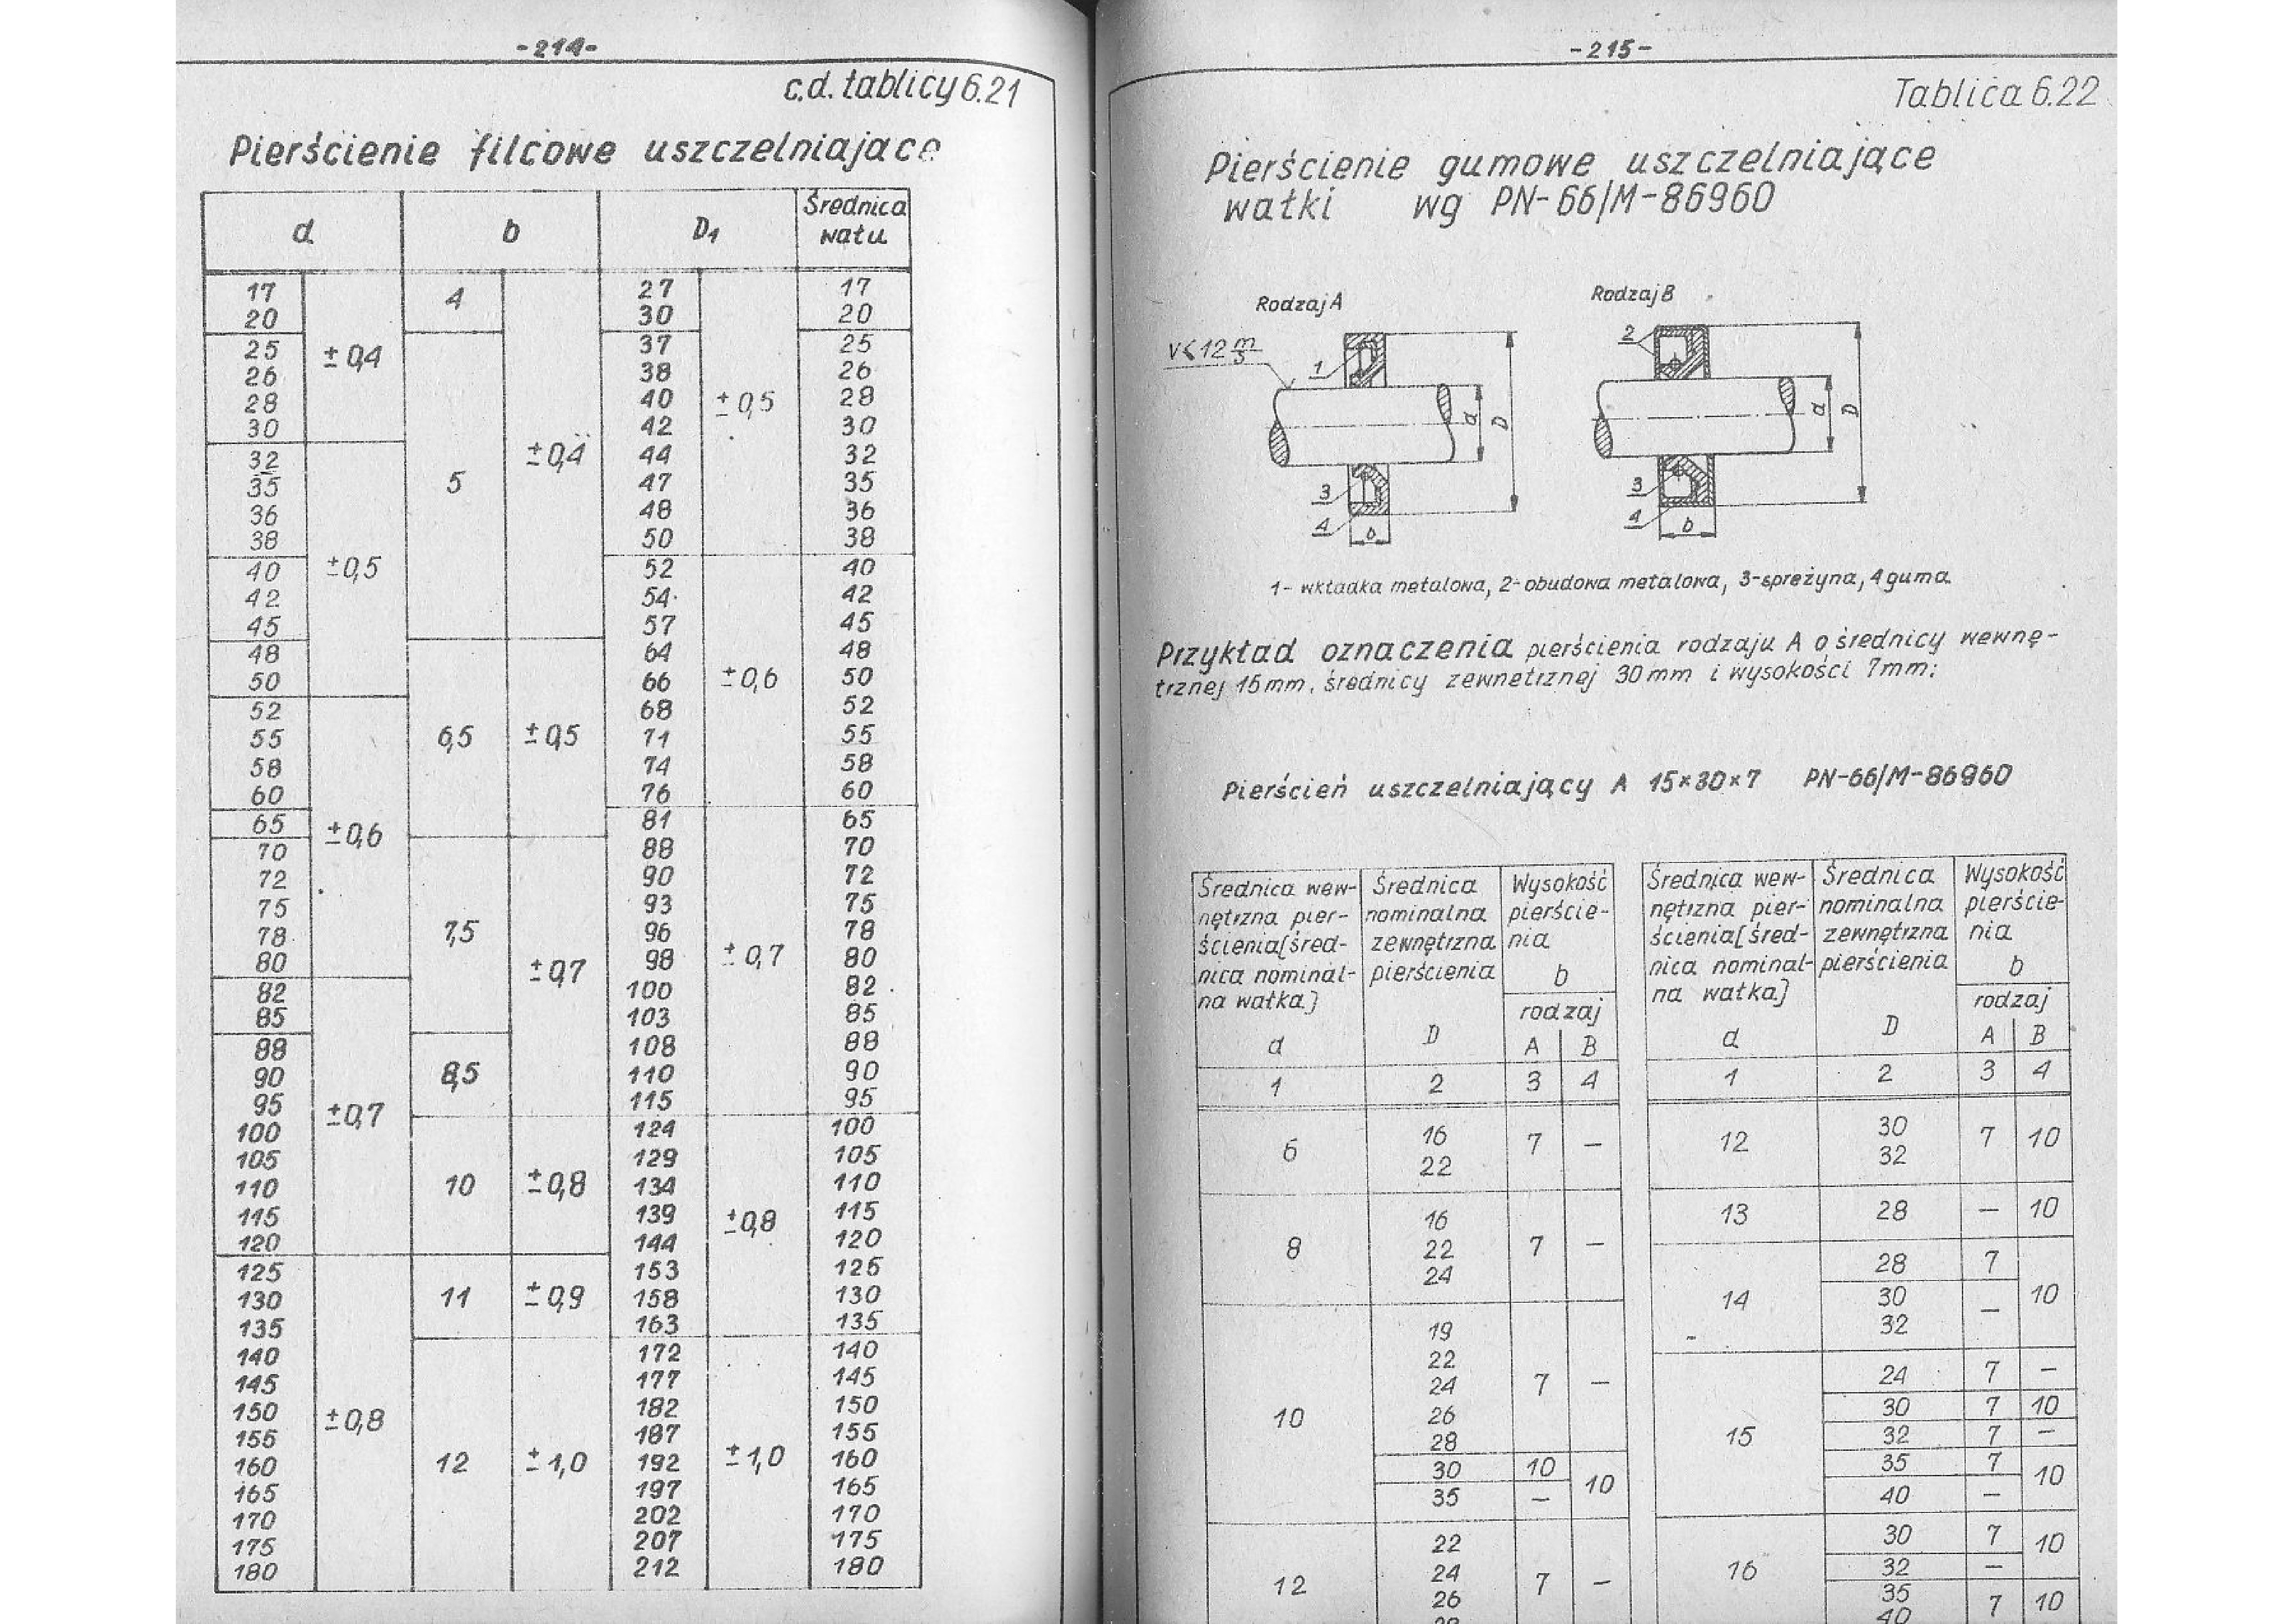 -214-
c.d. tablicy 6.21
Pierścienie filcowe uszczelniające
d b D1 Średnica
wału
17 4 27 17
20 30 20
25 37 25
± 0,4
26 38 26
28 40 ± 0,5 28
30 42 30
32 ± 0,4 44 32
35 5 47 35
36 48 36
38 50 38
40 ± 0,5 52 40
42 54 42
45 57 45
48 64 48
50 66 ± 0,6 50
52 68 52
55 6,5 ± 0,5 71 55
58 74 58
60 76 60
65 ± 0,6 81 65
70 88 70
72 90 72
75 93 75
78 7,5 96 78
80 98 ± 0,7 80
± 0,7
82 100 82
85 103 85
88 108 88
90 8,5 110 90
95 ± 0,7 115 95
100 124 100
105 129 105
110 10 ± 0,8 134 110
115 139 ± 0,8 115
120 144 120
125 153 125
130 11 ± 0,9 158 130
135 163 135
140 172 140
145 177 145
150 ± 0,8 182 150
155 187 155
160 12 ± 1,0 192 ± 1,0 160
165 197 165
170 202 170
175 207 175
180 212 180
-215-
Tablica 6.22
Pierścienie gumowe uszczelniające
wałki wg PN-66/M-86960
Rodzaj A
Rodzaj B
V≤12 m/s
1
3
4
b
d
D
2
3
4
b
d
D
1- wkładka metalowa, 2- obudowa metalowa, 3-sprężyna, 4 guma.
Przykład oznaczenia pierścienia rodzaju A o średnicy wewnę-
trznej 15mm, średnicy zewnetrznej 30mm i wysokości 7mm:
Pierścień uszczelniający A 15×30×7 PN-66/M-86960
Średnica wew- Średnica Wysokość
nętrzna pier- nominalna pierście-
ścienia[śred- zewnętrzna nia
nica nominal- pierścienia b
na wałka] rodzaj
d D A B
1 2 3 4
6 16 7 –
22
16
8 22 7 –
24
19
22
24 7 –
10 26
28
30 10 10
35 –
22
12 24 7 –
26
28
Średnica wew- Średnica Wysokość
nętrzna pier- nominalna pierście-
ścienia[śred- zewnętrzna nia
nica nominal- pierścienia b
na wałka] rodzaj
d D A B
1 2 3 4
12 30 7 10
32
13 28 – 10
28 7
14 30 – 10
32
24 7 –
30 7 10
15 32 7 –
35 7 10
40 –
30 7 10
16 32 –
35 7 10
40